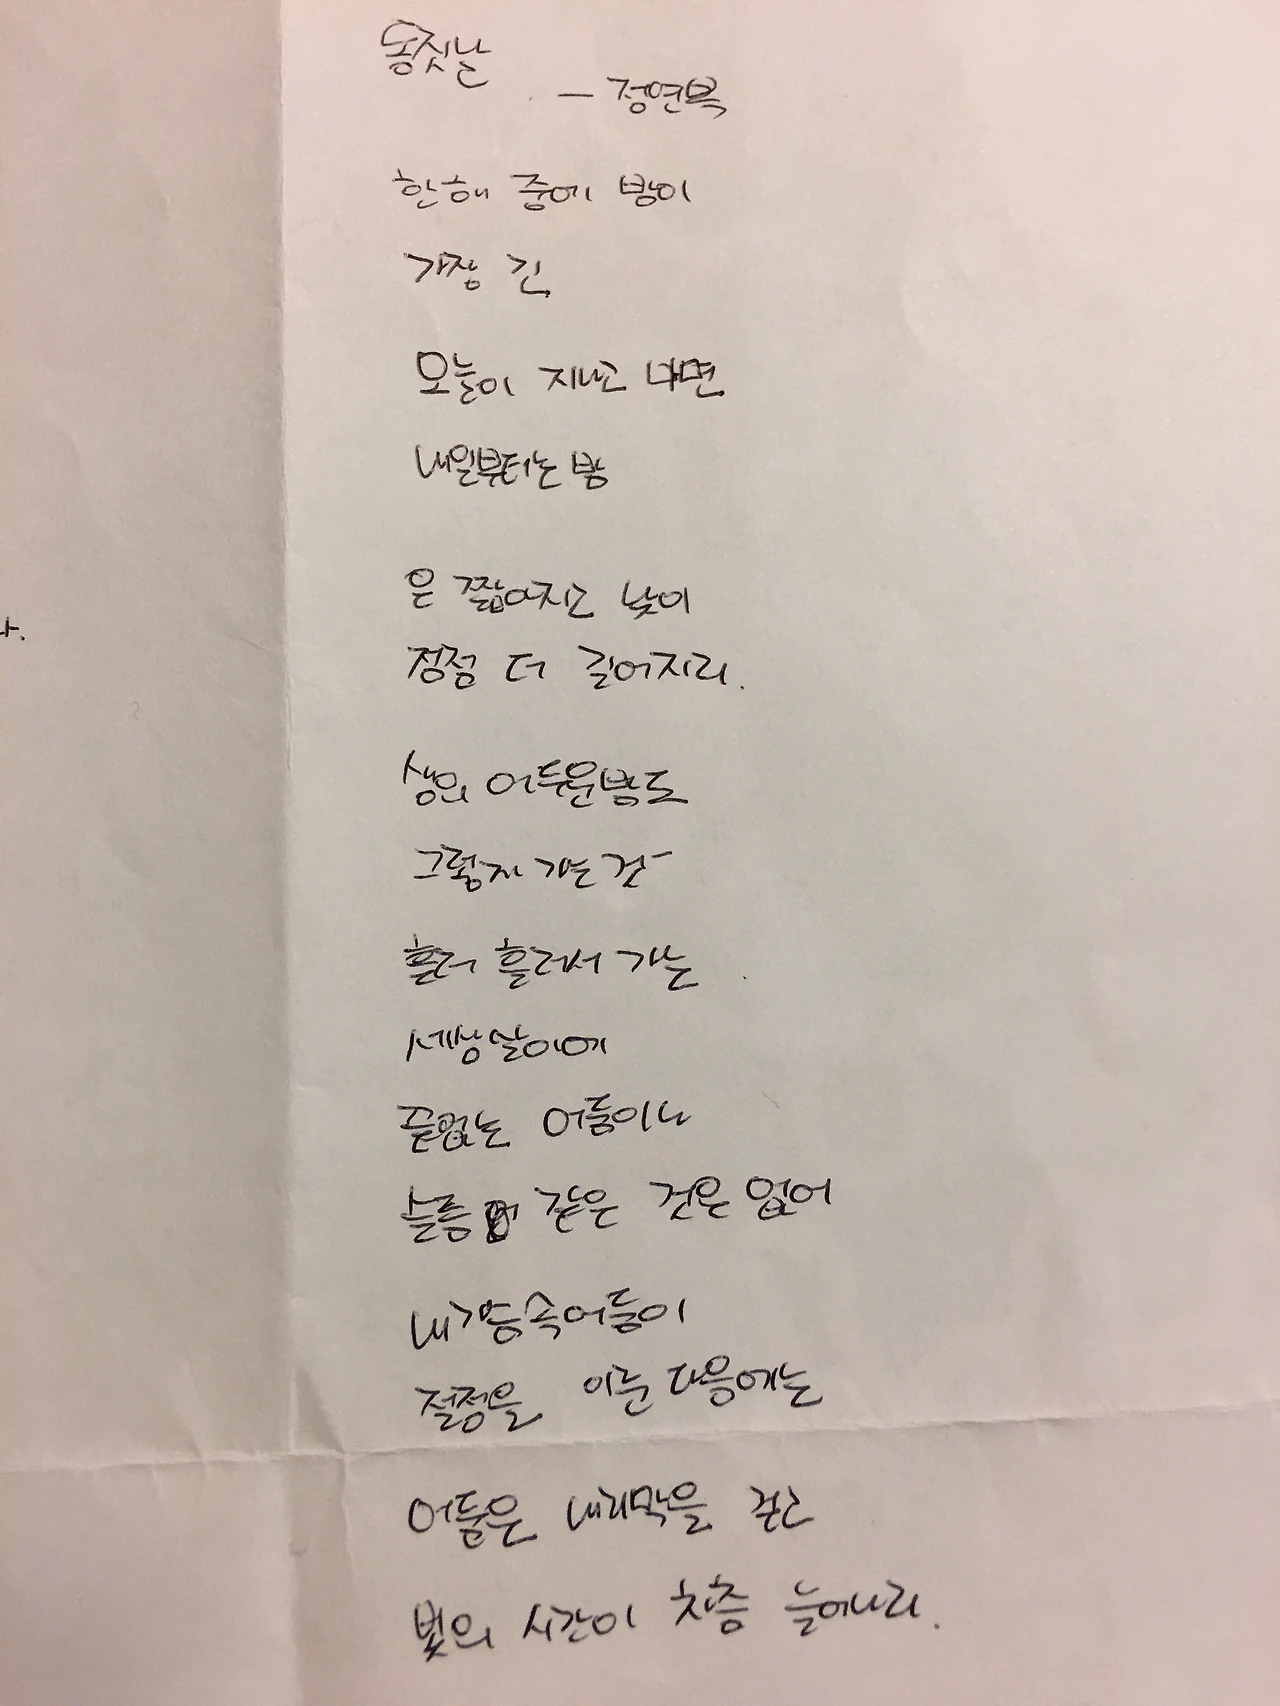 동짓날
— 정연복
한해 중에 밤이
가장 긴
오늘이 지나고 나면
내일부터는 밤
은 짧아지고 낮이
점점 더 길어지리.
생의 어두운밤도
그렇지 가는 것-
흘러 흘러서 가는
세상살이에
끝없는 어둠이나
슬픔 같은 것은 없어
내가슴속어둠이
절정을 이룬 다음에는
어둠은 내리막을 걷고
빛의 시간이 차츰 늘어나리.